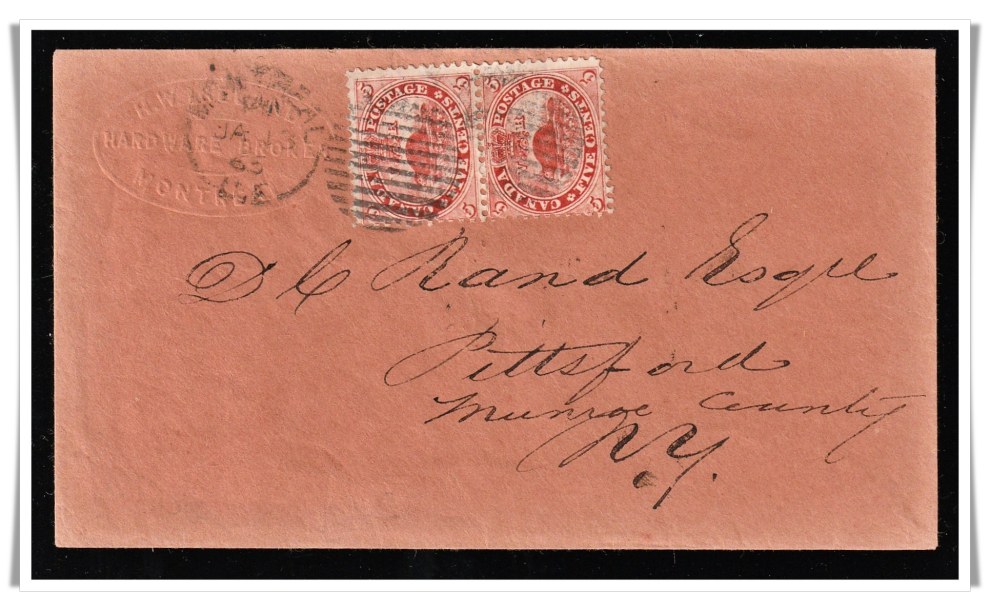 HARDWARE BROKER
MONTREAL
MONTREAL
JA 13
65
CANADA POSTAGE
FIVE CENTS
5
CANADA POSTAGE
FIVE CENTS
5
D C Rand Esqre
Pittsford
Munroe County
N.Y.